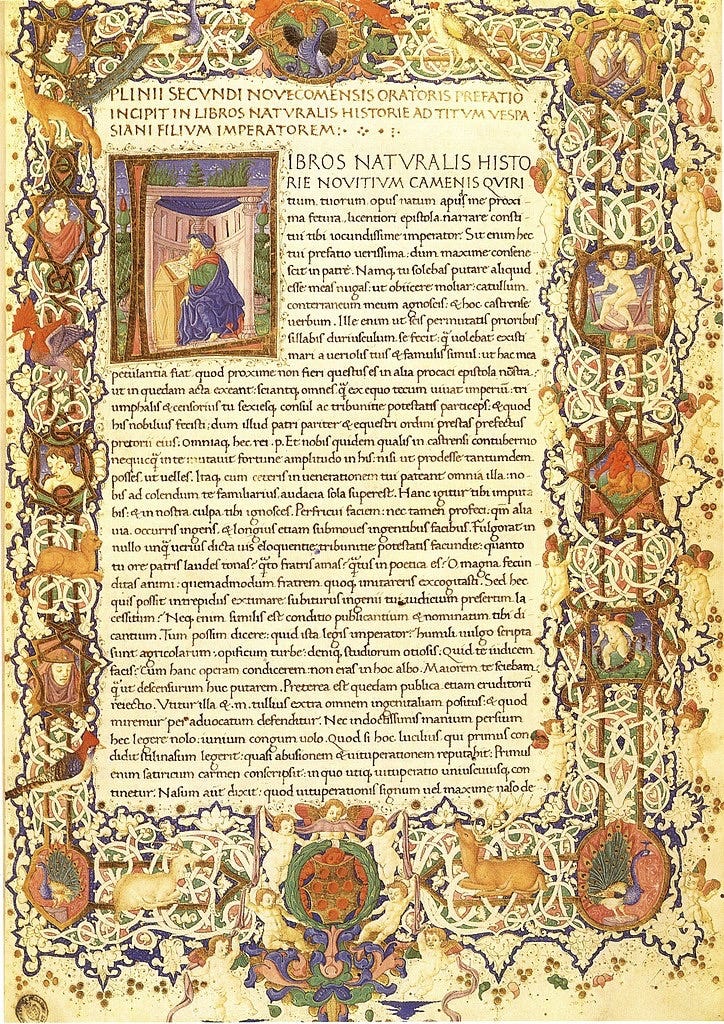 PLINII SECVNDI NOVECOMENSIS ORATORIS PREFATIO
INCIPIT IN LIBROS NATVRALIS HISTORIE AD TITVM VESPA
SIANI FILIVM IMPERATOREM:
LIBROS NATVRALIS HISTO
RIE NOVITIVM CAMENIS QVIRI
tium tuorum opus natum apud me proxi
ma fetura. licentiori epistola narrare consti
tui tibi iocundissime imperator. Sit enim hec
tui prefatio uerissima: dum maxime consene
scit in patre. Namq; tu solebas putare aliquid
esse meas nugas: ut obiicere moliar catullum
conterraneum meum agnoscis: & hoc castrense
uerbum. Ille enim ut scis permutatis prioribus
sillabis duriusculum se fecit: q̃ uolebat existi
mari a ueriolis tuis & famulis simul: ut hac mea
petulantia fiat quod proxime non fieri questus es in alia procaci epistola nostra:
ut in quedam acta exeant: sciantq; omnes q̃ ex equo tecum uiuat imperiũ: tri
umphalis & censorius tu sexiesq; consul ac tribunitie potestatis particeps: & quod
his nobilius fecisti: dum illud patri pariter & equestri ordini prestas prefectus
pretorii eius: Omniaq; hec rei . p. Et nobis quidem qualis in castrensi contubernio
nequicq̃ mutauit fortune amplitudo in his: nisi ut prodesse tantumdem
posses: ut uelles. Itaq; cum ceteris in uenerationem tui pateant omnia illa: no
bis ad colendum te familiarius audacia sola superest. Hanc igitur tibi imputa
bis: & in nostra culpa tibi ignosces. Perfricui faciem: nec tamen profeci: qm̃ alia
uia occurris ingens: & longius etiam submoues ingentibus facibus. Fulgorat in
nullo unq̃ uerius dicta uis eloquentie: tribunitie potestatis facundie: quanto
tu ore patris laudes tonas: q̃to fratris amas: q̃tus in poetica es: O magna fecun
ditas animi: quemadmodum fratrem quoq; imitareris excogitasti. Sed hec
quis possit intrepidus extimare subiturus ingenii tui iudicium presertim la
cessitum: Neq; enim similis est conditio publicantium & nominatim tibi di
cantium. Tum possim dicere: quid ista legis imperator: humili uulgo scripta
sunt agricolarum: opificum turbe: deniq; studiorum otiosis. Quid te iudicem
facis: Cum hanc operam condicerem non eras in hoc albo. Maiorem te sciebam
q̃ ut descensurum huc putarem. Preterea est quedam publica etiam eruditorũ
reiectio. Vtitur illa & .m. tullius extra omnem ingenii aliam positus: & quod
miremur per aduocatum defenditur. Nec indoctissimis manium persium
hec legere nolo: iunium congum uolo. Quod si hoc lucilius qui primus con
didit stili nasum legerit: quasi abusionem & uituperationem reputabit: Primus
enim satiricum carmen conscripsit: in quo utiq; uituperatio uniuscuiusq; con
tinetur: Nasum aut dixit: quod uituperationis signum uel maxime naso de